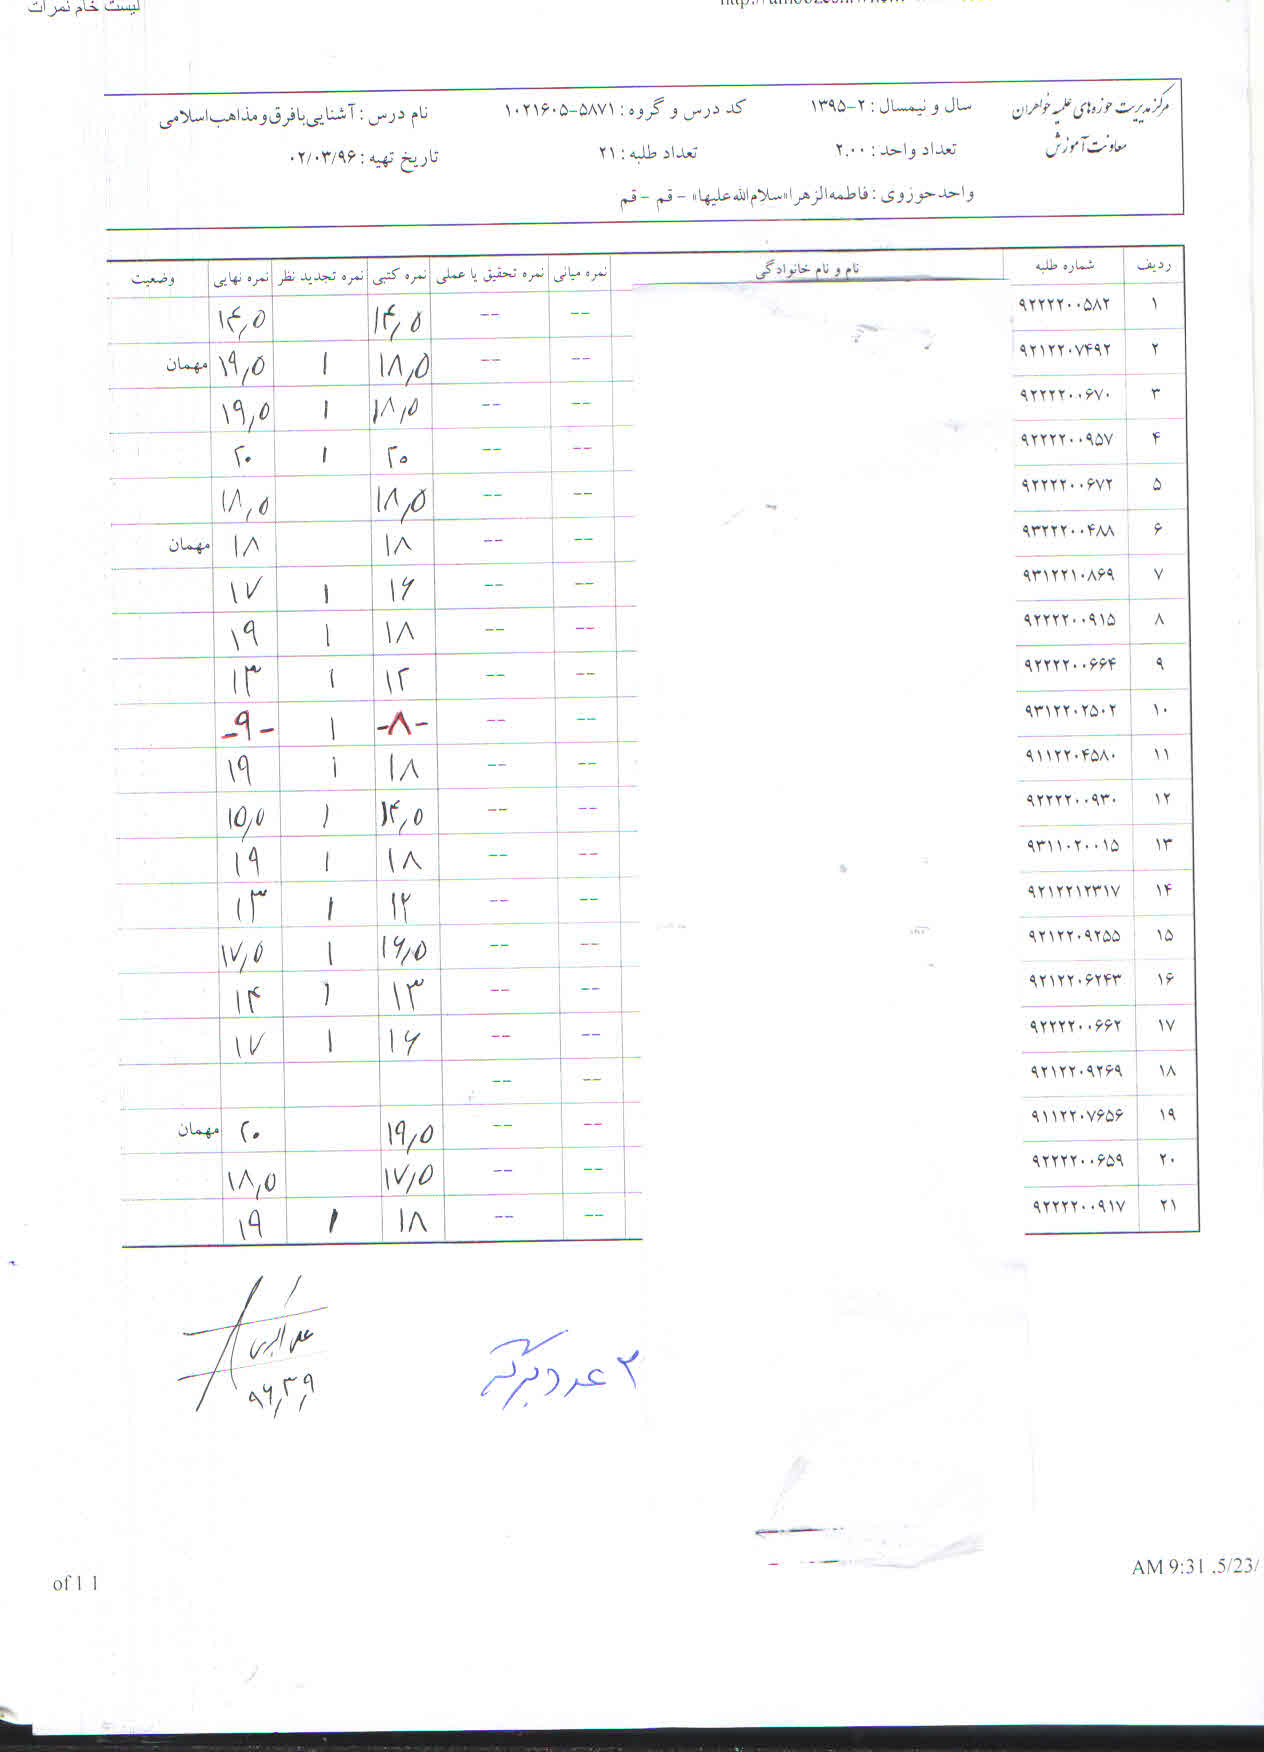 لیست خام نمرات
مرکز مدیریت حوزه‌های علمیه خواهران سال و نیمسال : ۱۳۹۵-۲ کد درس و گروه : ۵۸۷۱-۱۰۲۱۶۰۵ نام درس : آشنایی با فرق و مذاهب اسلامی
معاونت آموزش تعداد واحد : ۲.۰۰ تعداد طلبه : ۲۱ تاریخ تهیه : ۰۲/۰۳/۹۶
واحد حوزوی : فاطمه الزهرا «سلام الله علیها» - قم - قم
ردیف شماره طلبه نام و نام خانوادگی نمره میانی نمره تحقیق یا عملی نمره کتبی نمره تجدید نظر نمره نهایی وضعیت
۱ ۹۲۲۲۲۰۰۵۸۲ -- -- ۱۴٫۵ ۱۴٫۵
۲ ۹۲۱۲۲۰۷۴۹۲ -- -- ۱۸٫۵ ۱ ۱۹٫۵ مهمان
۳ ۹۲۲۲۲۰۰۶۷۰ -- -- ۱۸٫۵ ۱ ۱۹٫۵
۴ ۹۲۲۲۲۰۰۹۵۷ -- -- ۲۰ ۱ ۲۰
۵ ۹۲۲۲۲۰۰۶۷۲ -- -- ۱۸٫۵ ۱۸٫۵
۶ ۹۳۲۲۲۰۰۴۸۸ -- -- ۱۸ ۱۸ مهمان
۷ ۹۳۱۲۲۱۰۸۶۹ -- -- ۱۶ ۱ ۱۷
۸ ۹۲۲۲۲۰۰۹۱۵ -- -- ۱۸ ۱ ۱۹
۹ ۹۲۲۲۲۰۰۶۶۴ -- -- ۱۲ ۱ ۱۳
۱۰ ۹۳۱۲۲۰۲۵۰۲ -- -- -۸- ۱ -۹-
۱۱ ۹۱۱۲۲۰۴۵۸۰ -- -- ۱۸ ۱ ۱۹
۱۲ ۹۲۲۲۲۰۰۹۳۰ -- -- ۱۴٫۵ ۱ ۱۵٫۵
۱۳ ۹۳۱۱۰۲۰۰۱۵ -- -- ۱۸ ۱ ۱۹
۱۴ ۹۲۱۲۲۱۲۳۱۷ -- -- ۱۲ ۱ ۱۳
۱۵ ۹۲۱۲۲۰۹۲۵۵ -- -- ۱۶٫۵ ۱ ۱۷٫۵
۱۶ ۹۲۱۲۲۰۶۲۴۳ -- -- ۱۳ ۱ ۱۴
۱۷ ۹۲۲۲۲۰۰۶۶۲ -- -- ۱۶ ۱ ۱۷
۱۸ ۹۲۱۲۲۰۹۲۶۹ -- --
۱۹ ۹۱۱۲۲۰۷۶۵۶ -- -- ۱۹٫۵ ۲۰ مهمان
۲۰ ۹۲۲۲۲۰۰۶۵۹ -- -- ۱۷٫۵ ۱۸٫۵
۲۱ ۹۲۲۲۲۰۰۹۱۷ -- -- ۱۸ ۱ ۱۹
۹۶٫۳٫۹
۲ عدد برگه
AM 9:31 .5/23/
of 1 1